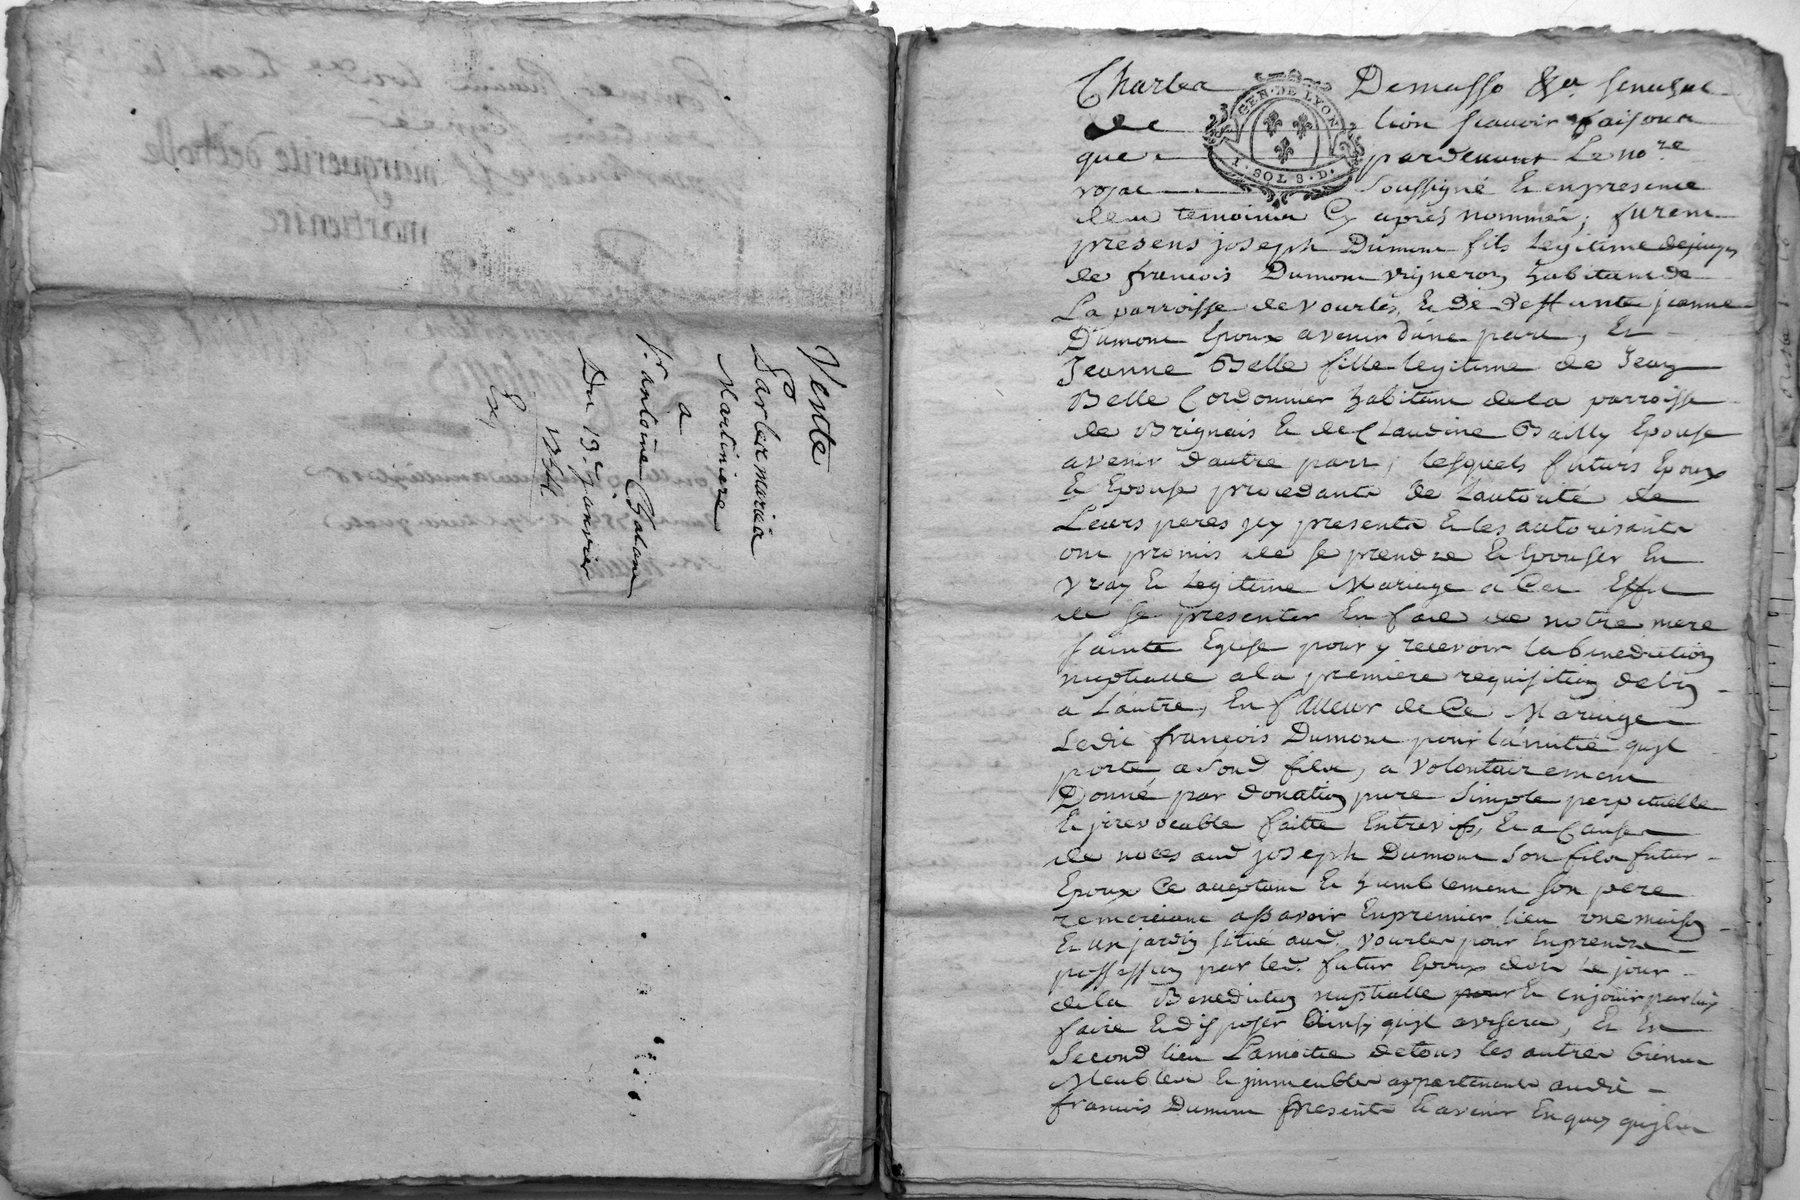 Vente
Par les mariés
Martiniere
a
Sr antoine Chatane
Du 13e janvier
Ex
marguerite
martiniere
Charles Demasso &a senechal
de lion scavoir faisons
que pardevant le nore
royal soussigné et en presence
des temoins cy aprés nommés; furent
presens joseph Dumont fils legitime
de francois Dumont vigneron habitant de
La parroisse de vourles, et de deffunte jeanne
Dumont Epoux avenir d'une part, et
Jeanne Belle fille legitime de Jean
Belle Cordonnier habitant de la parroisse
de Brignais et de Claudine Bailly Epouse
avenir d'autre part, lesquels futurs Epoux
et Epouse procedants de l'autorité de
Leurs peres icy presents et les autorisants
ont promis de se prendre et Epouser en
vray et legitime Mariage a cet effet
de se presenter en face de notre mere
sainte Eglise pour y recevoir la benediction
nuptialle a la premiere requisition de l'un
a L'autre, en faveur de Ce Mariage
Ledit françois Dumont pour l'amitié qu'il
porte a sond fils, a volontairement
Donné par donation pure simple perpetuelle
et jrrevocable faitte entrevifs, et a Cause
de noces aud joseph Dumont son fils futur
Epoux Ce acceptant et humblement son pere
remerciant assavoir en premier lieu une maison
et un jardin situé aud. vourles pour en prendre
possession par led. futur Epoux dois le jour
de la Benediction nuptialle pour et en jouir par luy
faire et disposer Ainsy qu'il avisera, et en
Second lieu La moitié de tous les autres biens
Meubles et jmmeubles appartenants audit
francois Dumont presents et avenir en quoy qu'ils
I · SOL S. D.
GEN · DE LYON